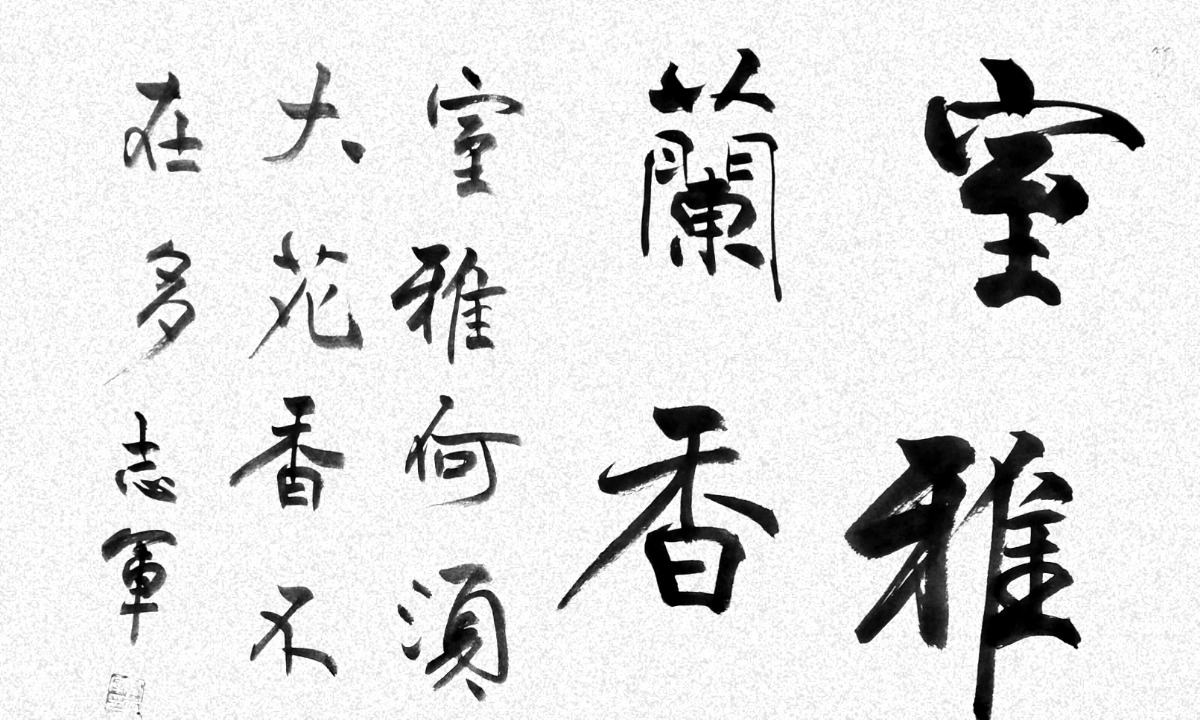 室雅
蘭香
室雅何須
大花香不
在多
志軍